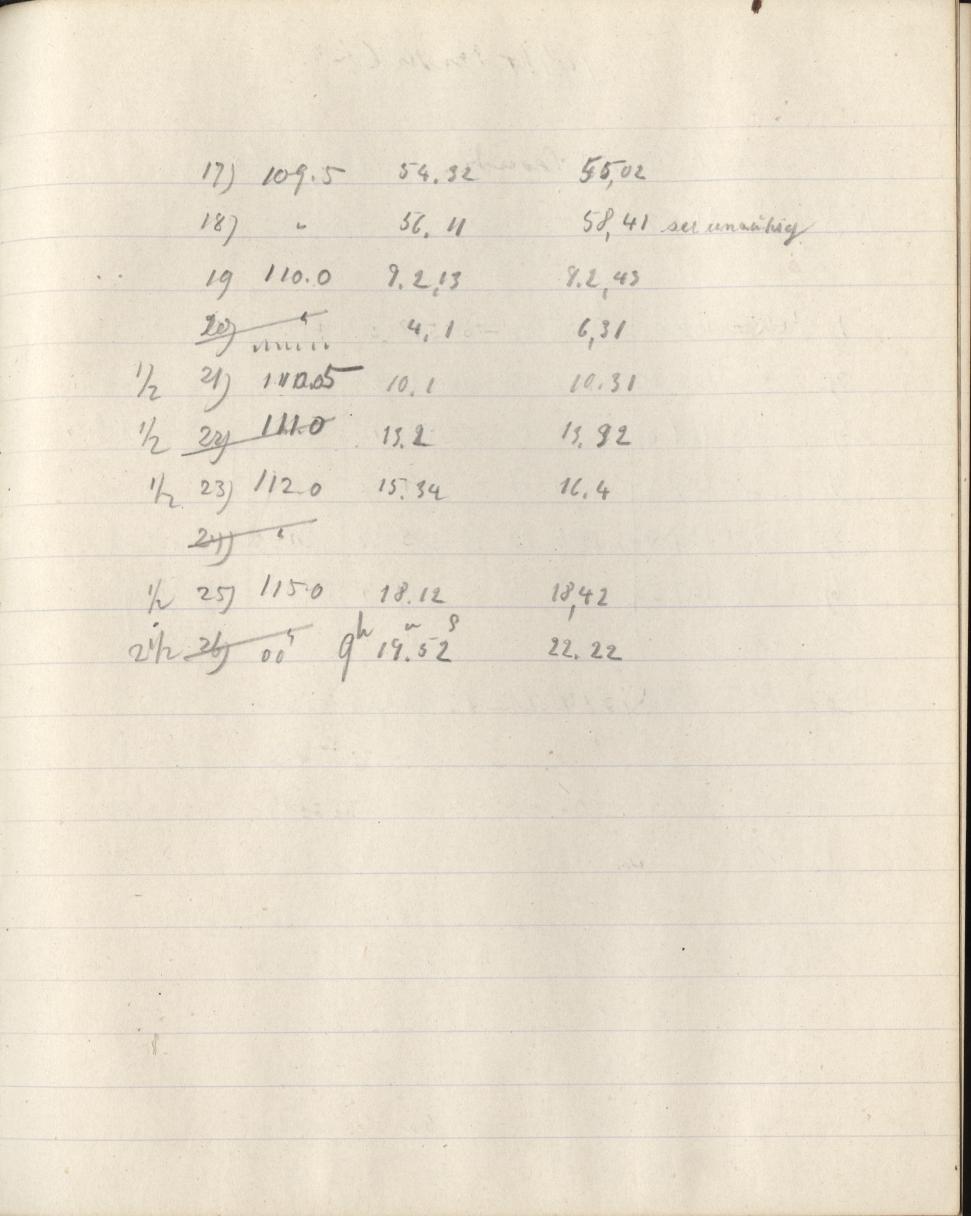 17) 109.5 54.32 55,02
18) " 56.11 58,41 ser unruhig
19 110.0 9.2,13 9.2,43
20) " 4,1 6,31
1/2 21) 110.05 10.1 10.31
1/2 22) 111.0 13.2 13.32
1/2 23) 112.0 15.34 16.4
24) "
1/2 25) 115.0 18.12 18,42
2 1/2 26) 00 " 9h 19.m52s 22.22